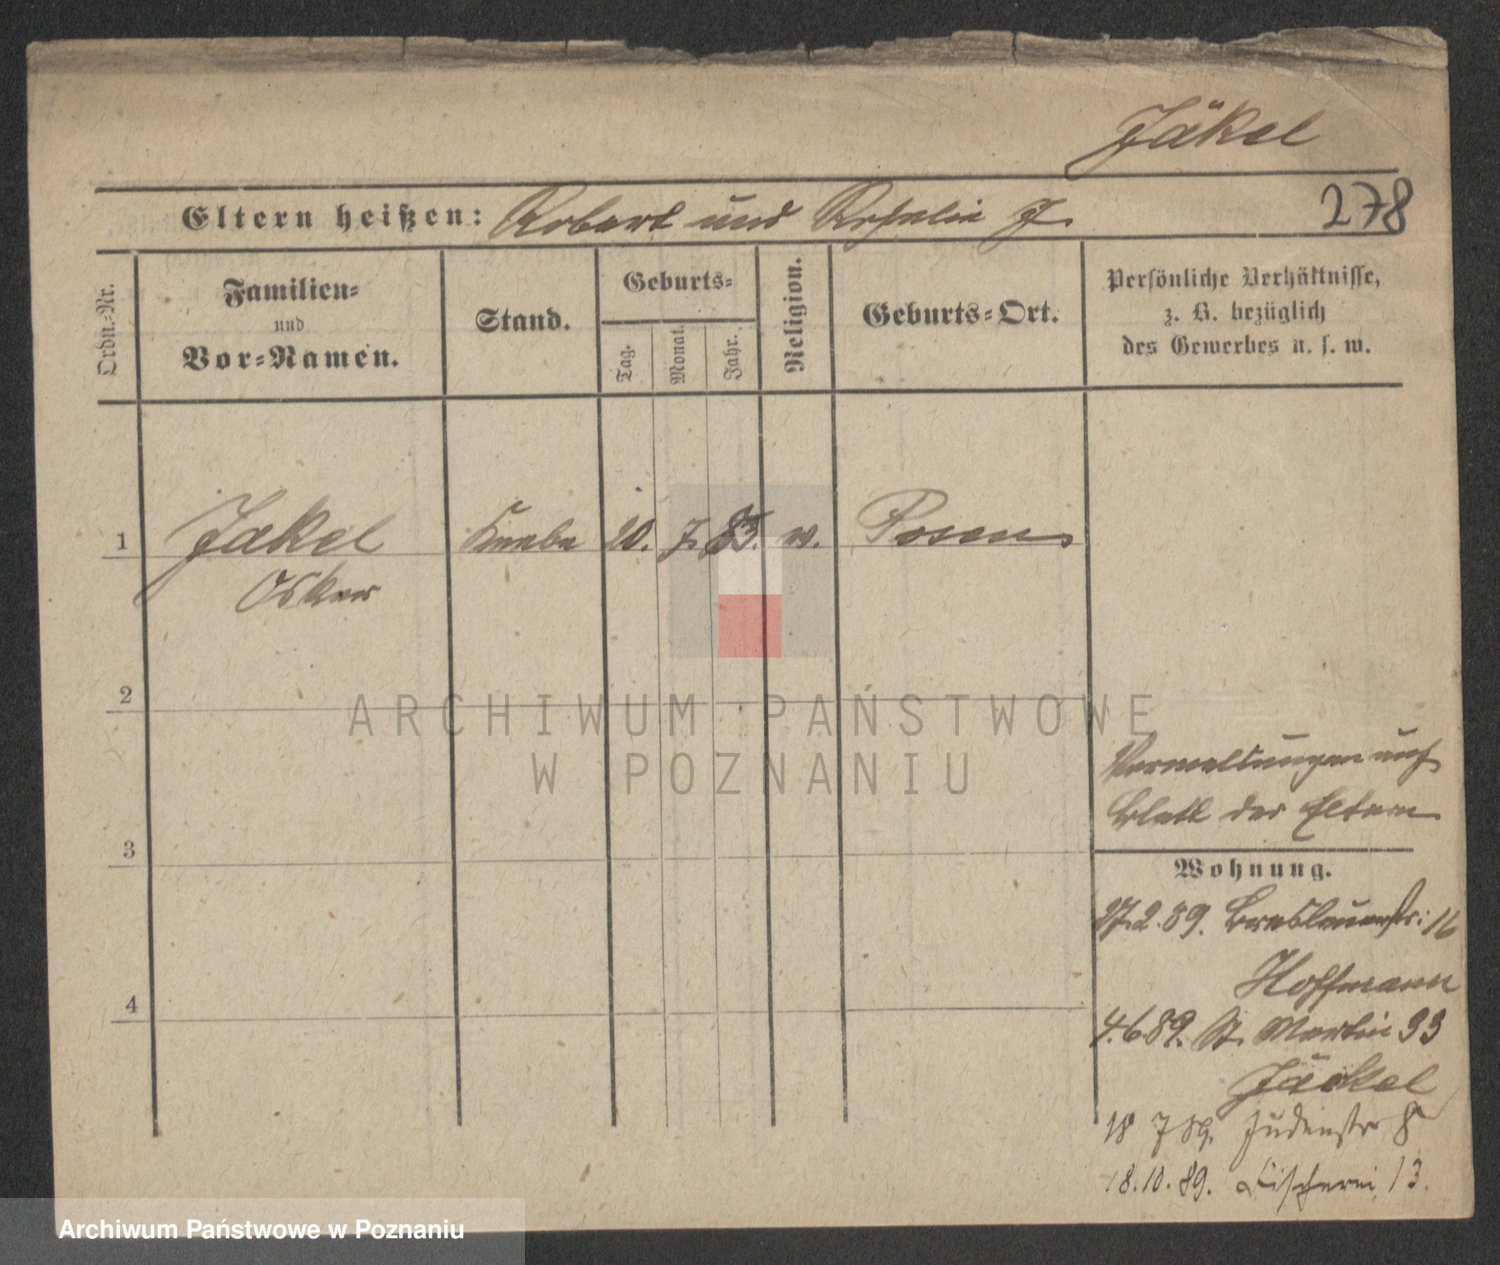 Jäkel
278
Eltern heißen: Robert und Rosalie J.
Ordn.-Nr.
Familien-
und
Vor-Namen.
Stand.
Geburts-
Tag.
Monat.
Jahr.
Religion.
Geburts-Ort.
Persönliche Verhältnisse,
z. B. bezüglich
des Gewerbes u. s. w.
1 Jakel Knabe 20. 7. 83. Posen
Oskar
2
3
4
Vermeldungen auf
Blatt der Eltern
Wohnung.
27.2.89. Breslauerstr: 16
Hoffmann
4.6.89. St. Martin 33
Jäckel
18 7 89. Judenstr 8
18.10.89. Fischerei 13.
ARCHIWUM PAŃSTWOWE
W POZNANIU
Archiwum Państwowe w Poznaniu